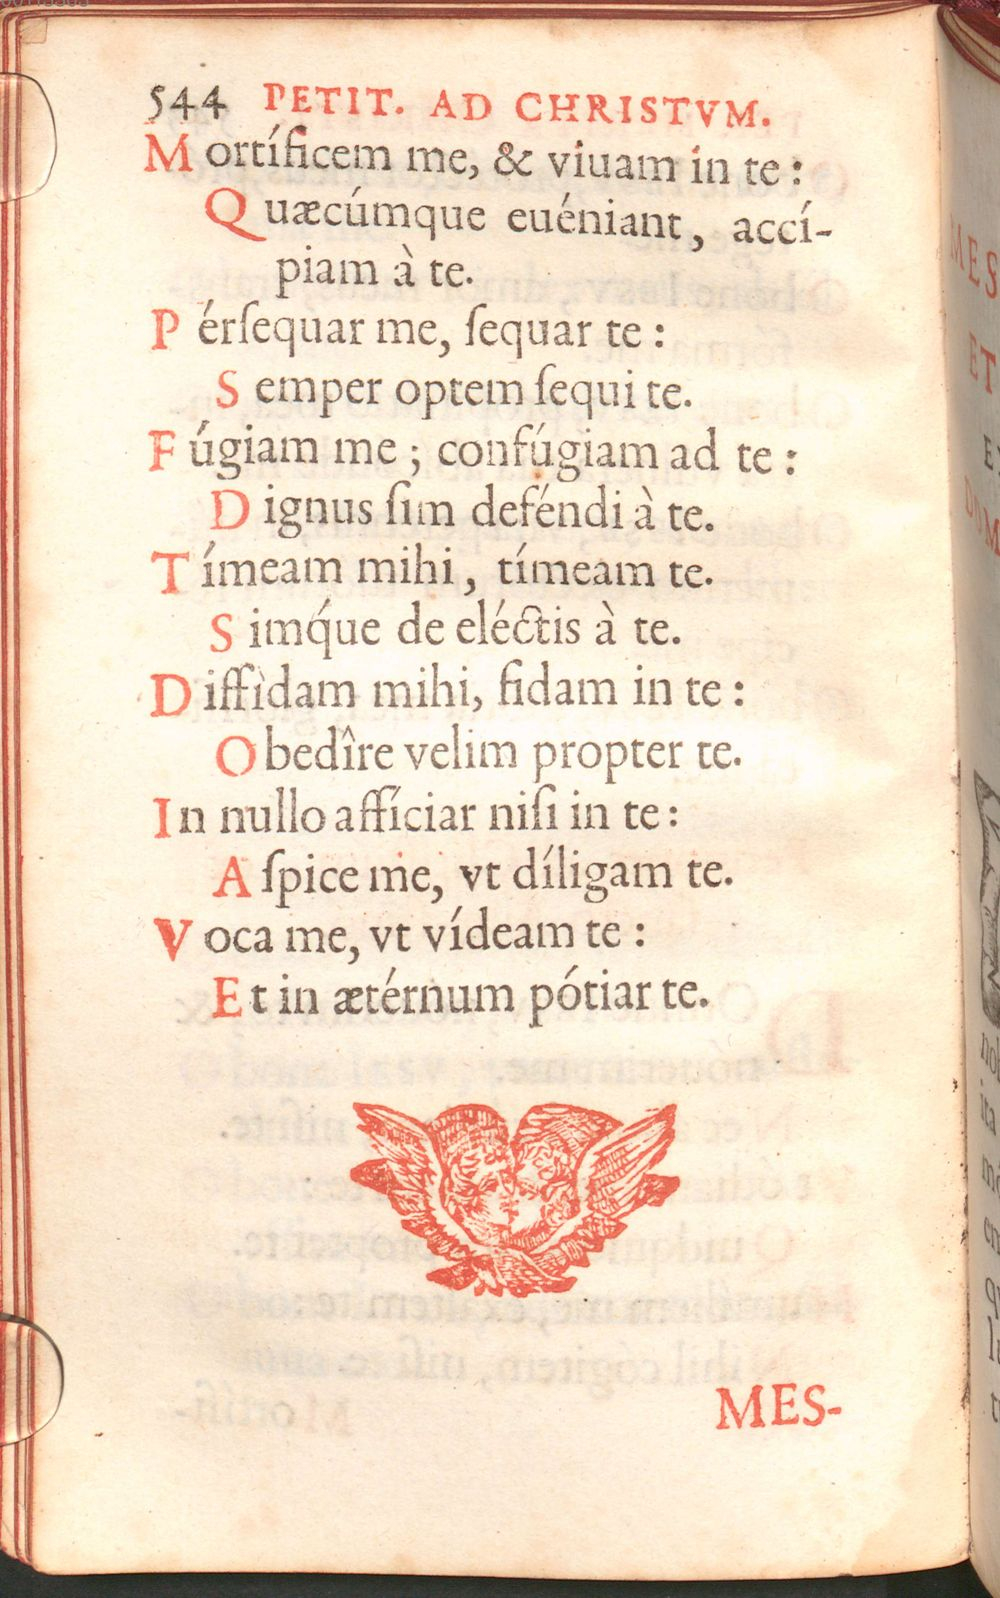 544 PETIT. AD CHRISTVM.
Mortíficem me, & viuam in te:
Quæcúmque euéniant, accí-
piam à te.
Pérſequar me, ſequar te:
Semper optem ſequi te.
Fúgiam me; confúgiam ad te:
Dignus ſim deféndi à te.
Tímeam mihi, tímeam te.
Simq́ue de eléctis à te.
Diffìdam mihi, fidam in te:
Obedîre velim propter te.
In nullo affíciar niſi in te:
Aſpice me, vt díligam te.
Voca me, vt vídeam te:
Et in ætérnum pótiar te.
MES-